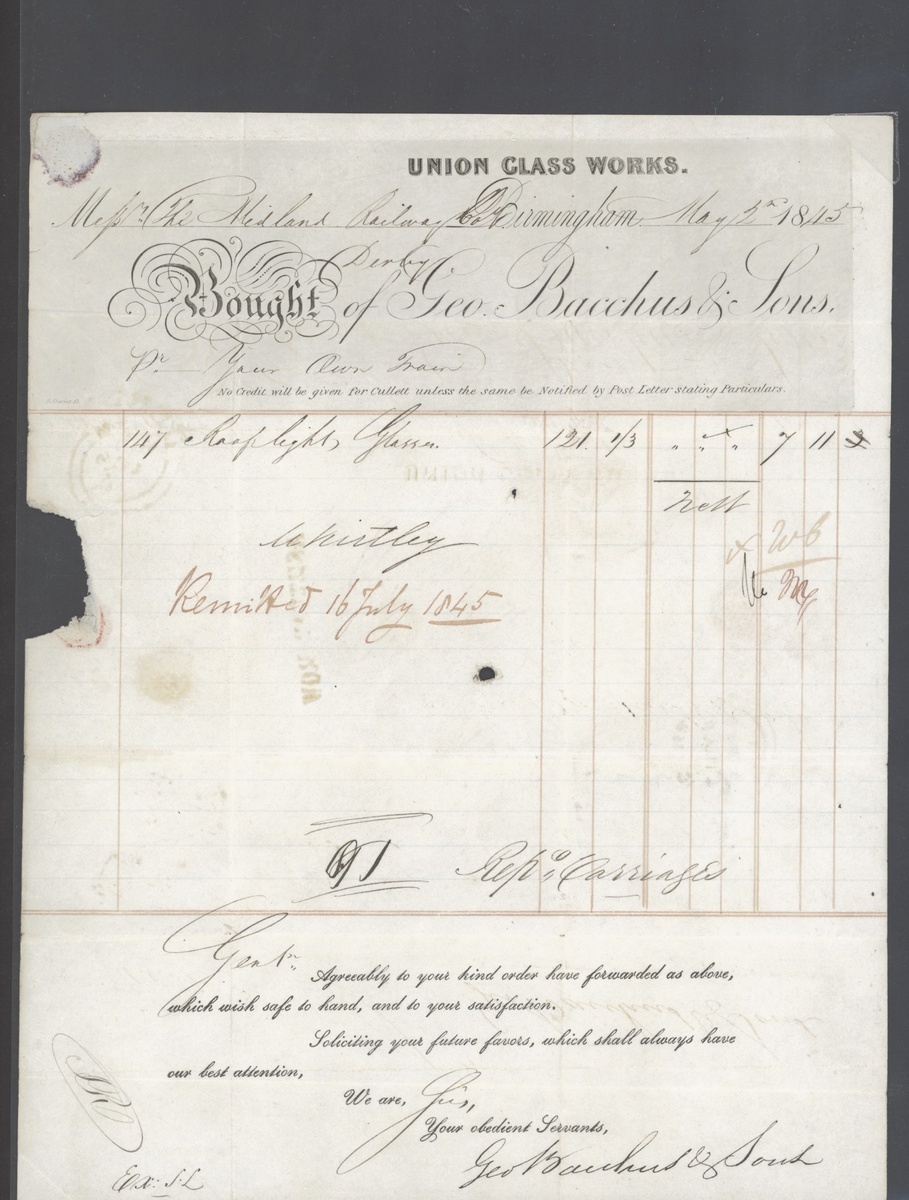 UNION GLASS WORKS.
Messrs. The Midland Railway Co. Birmingham. May 5th 1845
Derby
Bought of Geo. Bacchus & Sons.
Pr Your Own Train
No Credit will be given for Cullett unless the same be Notified by Post Letter stating Particulars.
147 Rooflight Glasses. 121. 1/3 " " " 7 11 3
Nett
Whirtley
Remitted 16 July 1845
91 Repg. Carriages
Gentn.
Agreeably to your kind order have forwarded as above,
which wish safe to hand, and to your satisfaction.
Soliciting your future favors, which shall always have
our best attention,
We are, Sirs,
Your obedient Servants,
Geo Bacchus & Sons
Ex: